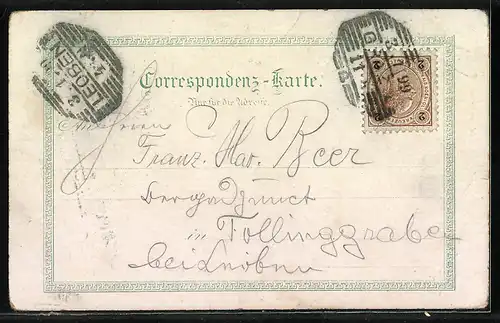 LEOBEN
Correspondenz-Karte.
Nur für die Adresse.
Herrn
Franz. Xav. Beer
Bergadjunct
in Tollinggraben
bei Leoben
99
2 2